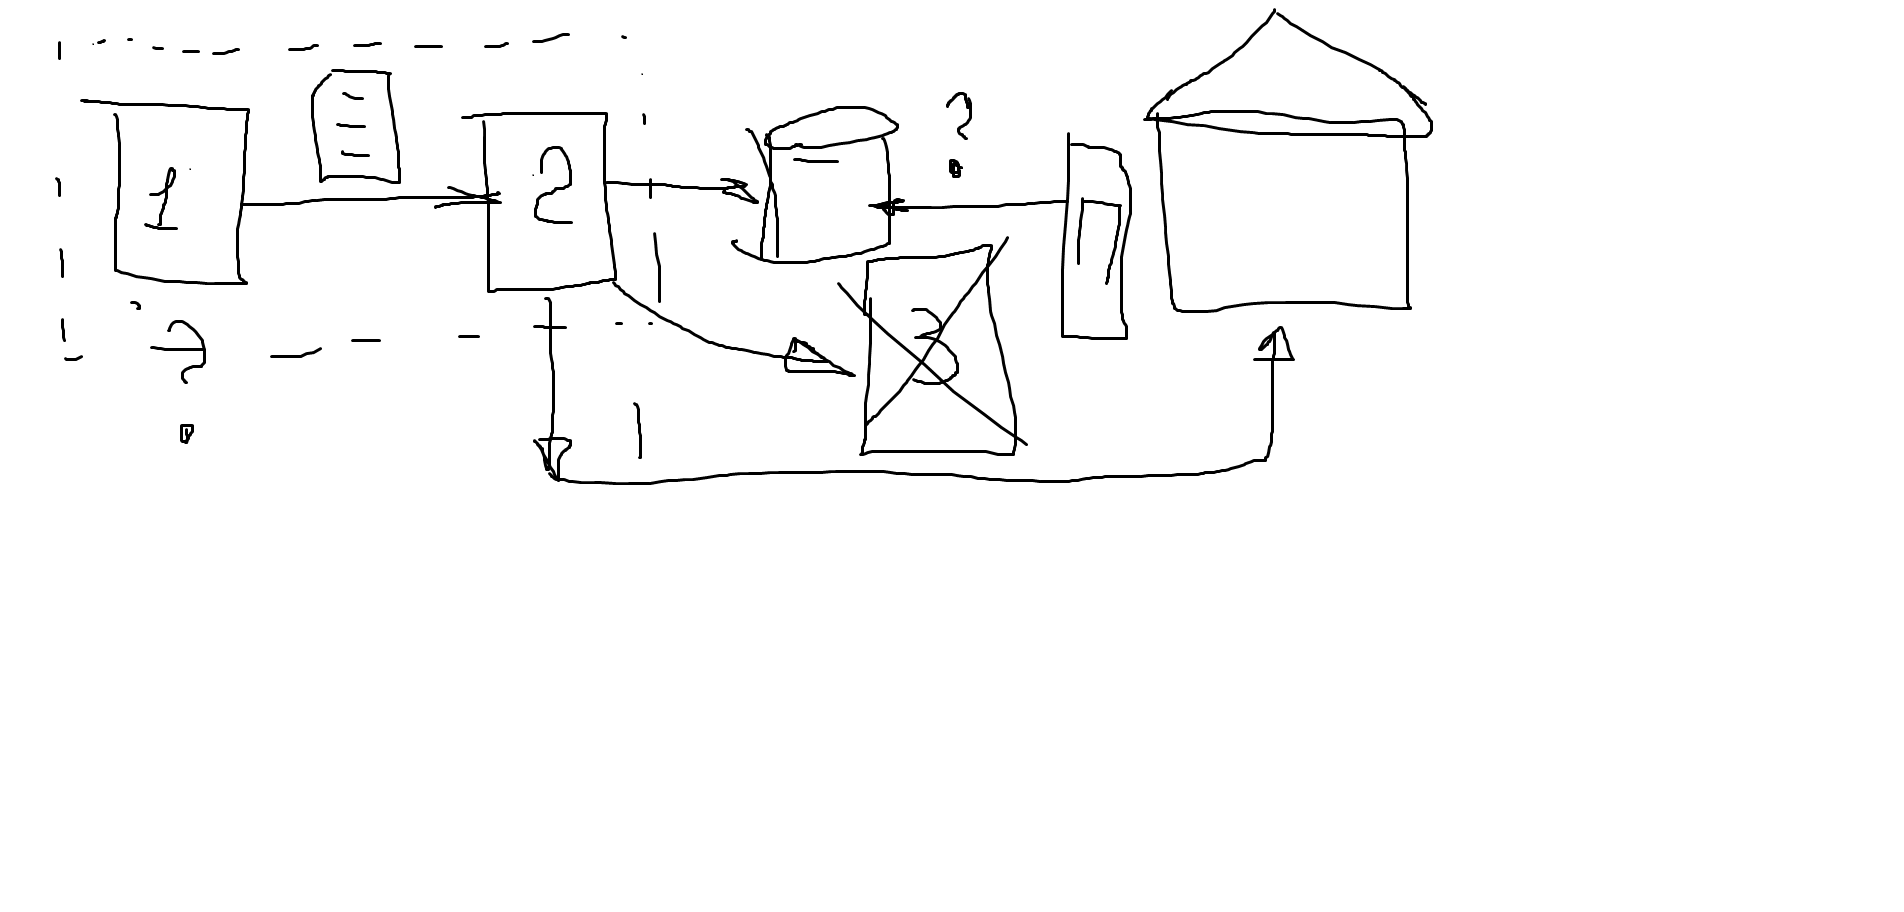 ?
1
2
3
?